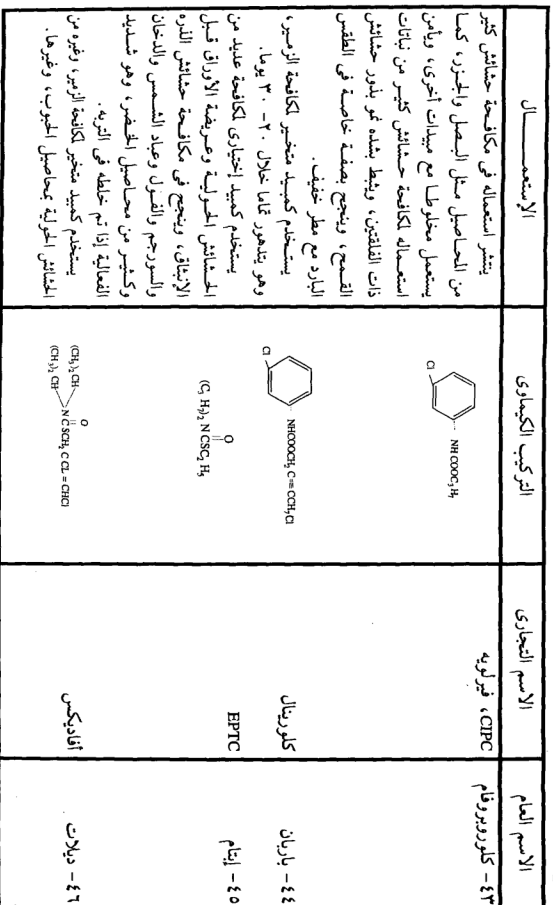 الاسم العام
الاسم التجارى
التركيب الكيماوى
الإستعمـــــال
٤٣ – كلوروبروفام
CIPC، فيرلويه
NH COOC₃ H₇
Cl
ينتشر استعماله فى مكافحة حشائش كثير
من المحاصيل مثل البصل والجزر، كما
يستعمل مخلوطا مع مبيدات أخرى، ويأمن
استعماله لمكافحة حشائش كثير من نباتات
ذات الفلقتين، ويثبط بشده نمو بذور حشائش
القمح، وينجح بصفة خاصة فى الطقس
البارد مع مطر خفيف.
٤٤ – باربان
كلورينال
NHCOOCH₂ C ≡ CCH₂Cl
Cl
يستخدم كمبيد متخير لمكافحة الزمير،
وهو يتدهور تماما خلال ٢٠ – ٣٠ يوما.
٤٥ – إيتام
EPTC
O
(C₃ H₇)₂ N CSC₂ H₅
يستخدم كمبيد إختيارى لمكافحة عديد من
الحشائش الحولية وعريضة الأوراق قبل
الإنبثاق، وينجح فى مكافحة حشائش الذره
والسورجم والفول وعباد الشمس والدخان
وكثير من محاصيل الخضر، وهو شديد
الفعالية إذا تم خلطه فى التربه.
٤٦ – ديلات
أفاديكس
(CH₃)₂ CH
O
N C SCH₂ C CL = CHCl
(CH₃)₂ CH
يستخدم كمبيد متخير لمكافحة الزمير، وغيره من
الحشائش الحولية بمحاصيل الحبوب، وغيرها.